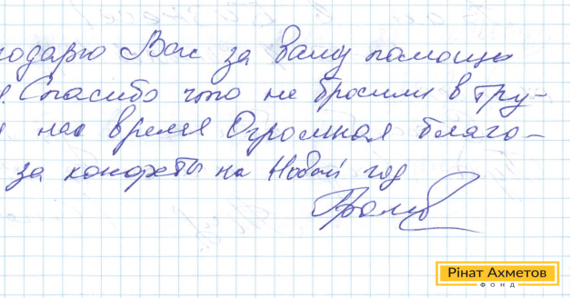 годарю Вас за вашу помощь
Спасибо что не бросили в тру-
нас время Огромная благо-
за конфеты на Новый год
Рінат Ахметов
ФОНД